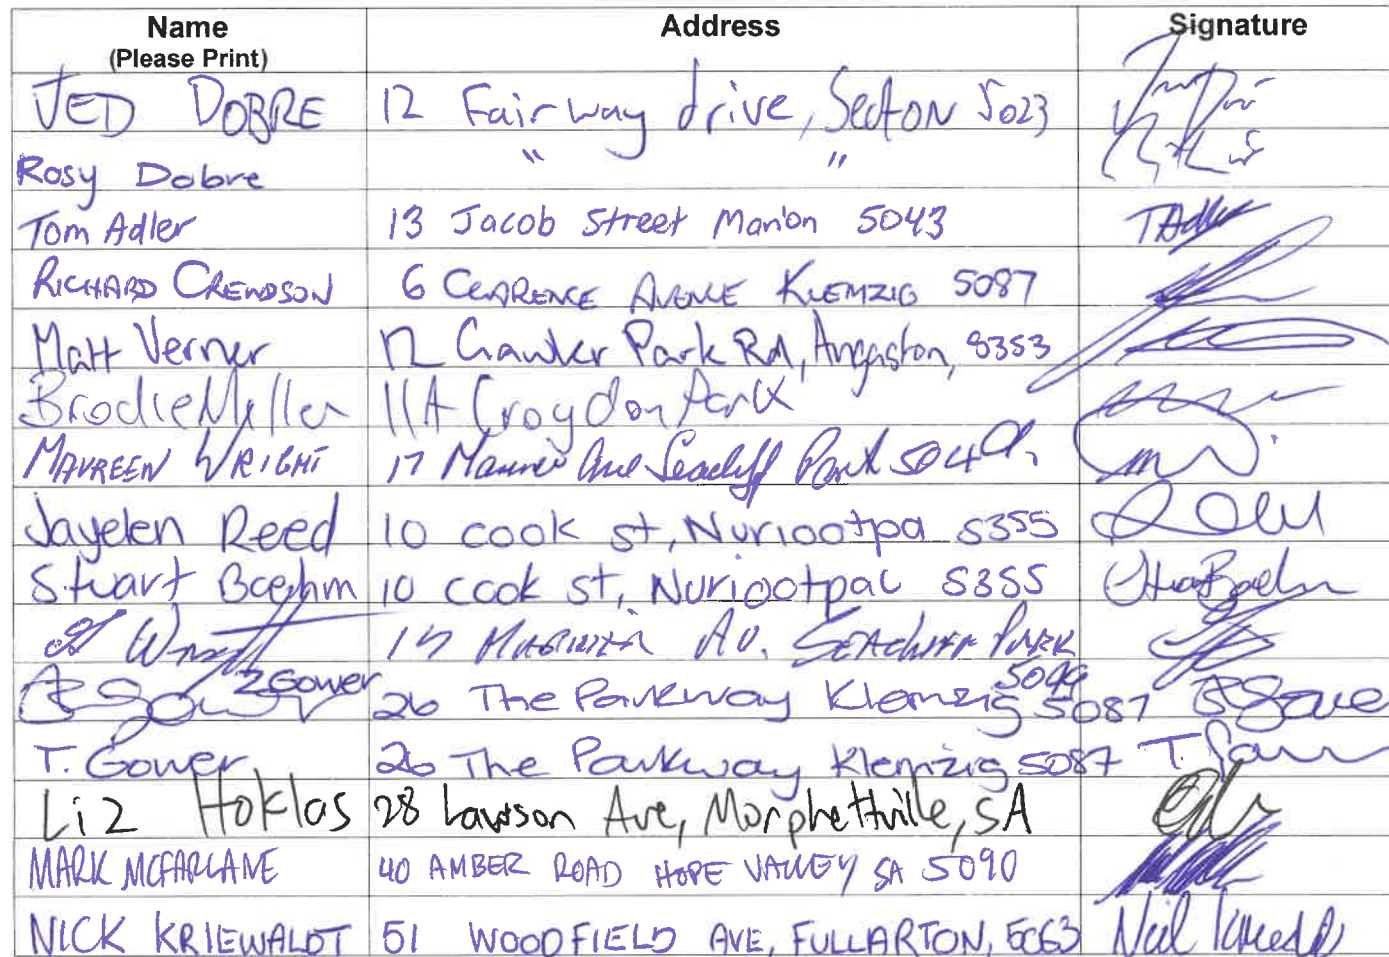 Name Address Signature
(Please Print)
JED DOBRE 12 Fairway drive, Seaton 5023
Rosy Dobre " "
Tom Adler 13 Jacob Street Marion 5043 TAdler
RICHARD CREWDSON 6 CLARENCE AVENUE KLEMZIG 5087
Matt Verner 12 Gawler Park Rd, Angaston, 5353
Brodie Miller 11A Croydon Park
MAUREEN WRIGHT 17 Mariner Ave Seacliff Park 5049.
Jayelen Reed 10 cook st, Nuriootpa 5355
Stuart Boehm 10 cook st, Nuriootpa 5355
Wright 17 MARINER AV. SEACLIFF PARK
5049
Z Gower 26 The Parkway Klemzig 5087
T. Gower 26 The Parkway Klemzig 5087 T.
Liz Hoklas 28 Lawson Ave, Morphettville, SA
MARK MCFARLANE 40 AMBER ROAD HOPE VALLEY SA 5090
NICK KRIEWALDT 51 WOODFIELD AVE, FULLARTON, 5063